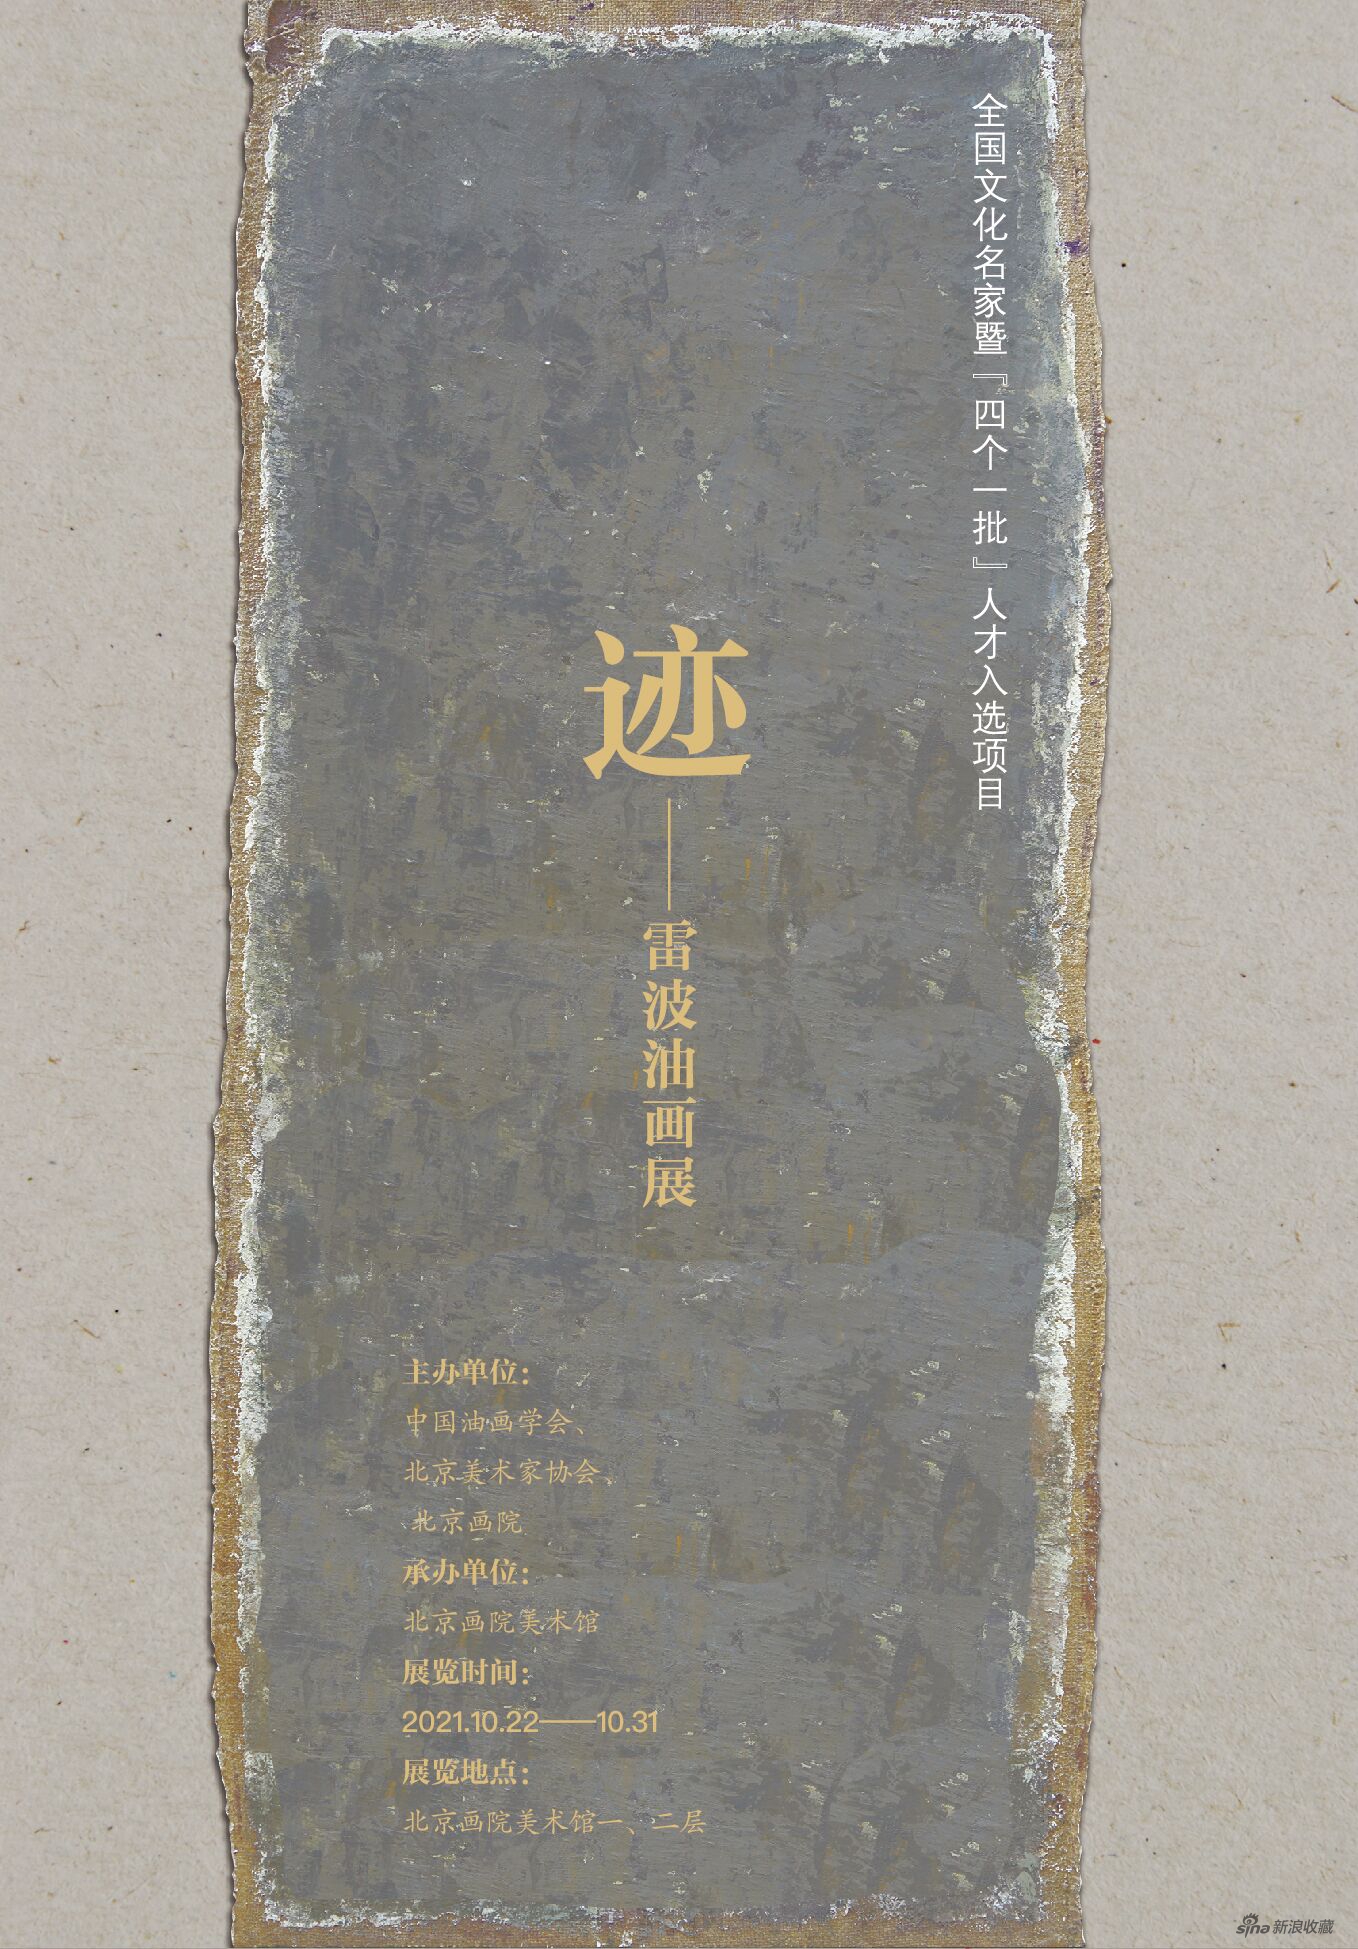 全国文化名家暨『四个一批』人才入选项目
迹
——雷波油画展
主办单位：
中国油画学会、
北京美术家协会、
北京画院
承办单位：
北京画院美术馆
展览时间：
2021.10.22——10.31
展览地点：
北京画院美术馆一、二层
sina新浪收藏